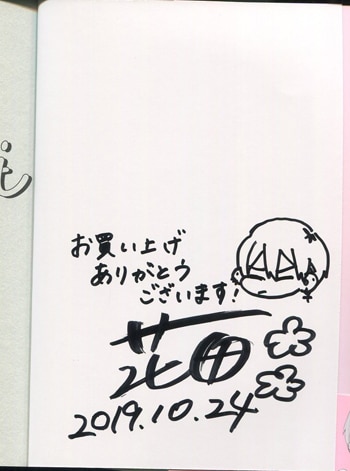 お買い上げ
ありがとう
ございます!
花田
2019.10.24